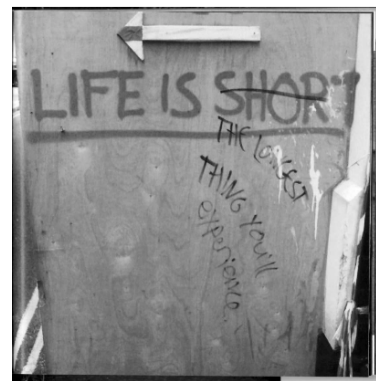 LIFE IS SHORT
THE LONGEST
THING YOU'll
experience.